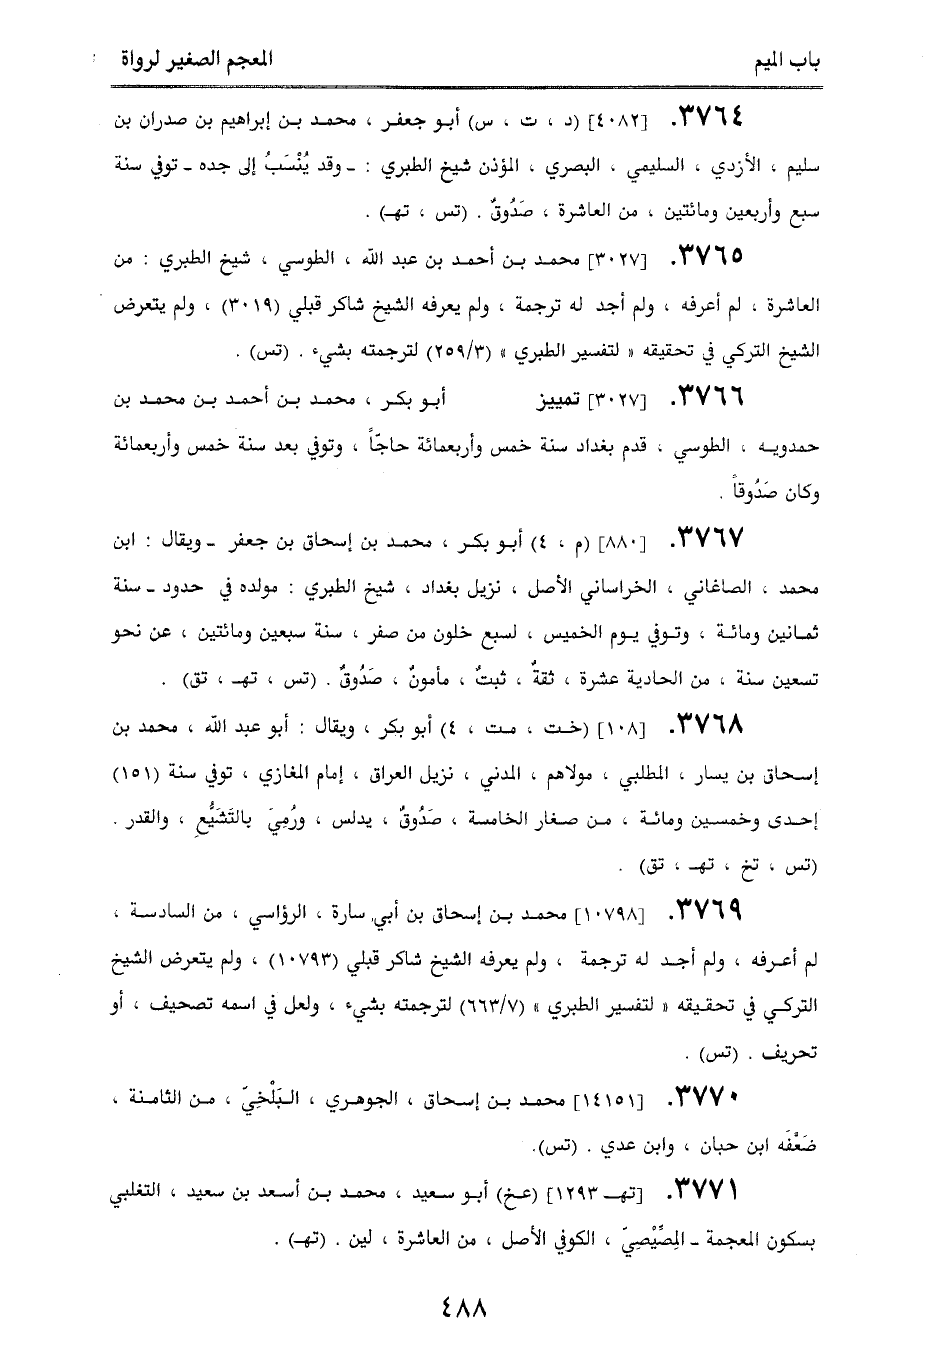 باب الميم
المعجم الصغير لرواة
٣٧٦٤. [٤٠٨٢] (د ، ت ، س) أبو جعفر ، محمد بن إبراهيم بن صدران بن
سليم ، الأزدي ، السليمي ، البصري ، المؤذن شيخ الطبري : ـ وقد يُنْسَبُ إلى جده ـ توفي سنة
سبع وأربعين ومائتين ، من العاشرة ، صَدُوقٌ . (تس ، تهـ) .
٣٧٦٥. [٣٠٢٧] محمد بن أحمد بن عبد الله ، الطوسي ، شيخ الطبري : من
العاشرة ، لم أعرفه ، ولم أجد له ترجمة ، ولم يعرفه الشيخ شاكر قبلي (٣٠١٩) ، ولم يتعرض
الشيخ التركي في تحقيقه « لتفسير الطبري » (٢٥٩/٣) لترجمته بشيء . (تس) .
٣٧٦٦. [٣٠٢٧] تمييز أبو بكر ، محمد بن أحمد بن محمد بن
حمدويه ، الطوسي ، قدم بغداد سنة خمس وأربعمائة حاجّاً ، وتوفي بعد سنة خمس وأربعمائة
وكان صَدُوقاً .
٣٧٦٧. [٨٨٠] (م ، ٤) أبو بكر ، محمد بن إسحاق بن جعفر ـ ويقال : ابن
محمد ، الصاغاني ، الخراساني الأصل ، نزيل بغداد ، شيخ الطبري : مولده في حدود ـ سنة
ثمانين ومائة ، وتوفي يوم الخميس ، لسبع خلون من صفر ، سنة سبعين ومائتين ، عن نحو
تسعين سنة ، من الحادية عشرة ، ثقةٌ ، ثبتٌ ، مأمونٌ ، صَدُوقٌ . (تس ، تهـ ، تق) .
٣٧٦٨. [١٠٨] (خت ، مت ، ٤) أبو بكر ، ويقال : أبو عبد الله ، محمد بن
إسحاق بن يسار ، المطلبي ، مولاهم ، المدني ، نزيل العراق ، إمام المغازي ، توفي سنة (١٥١)
إحدى وخمسين ومائة ، من صغار الخامسة ، صَدُوقٌ ، يدلس ، ورُمِيَ بالتَشَيُّعِ ، والقدر .
(تس ، تخ ، تهـ ، تق) .
٣٧٦٩. [١٠٧٩٨] محمد بن إسحاق بن أبي سارة ، الرؤاسي ، من السادسة ،
لم أعرفه ، ولم أجد له ترجمة ، ولم يعرفه الشيخ شاكر قبلي (١٠٧٩٣) ، ولم يتعرض الشيخ
التركي في تحقيقه « لتفسير الطبري » (٦٦٣/٧) لترجمته بشيء ، ولعل في اسمه تصحيف ، أو
تحريف . (تس) .
٣٧٧٠. [١٤١٥١] محمد بن إسحاق ، الجوهري ، البَلْخِيّ ، من الثامنة ،
ضَعَّفَه ابن حبان ، وابن عدي . (تس).
٣٧٧١. [تهـ ١٢٩٣] (عخ) أبو سعيد ، محمد بن أسعد بن سعيد ، التغلبي
بسكون المعجمة ـ المِصِّيْصِيّ ، الكوفي الأصل ، من العاشرة ، لين . (تهـ) .
٤٨٨